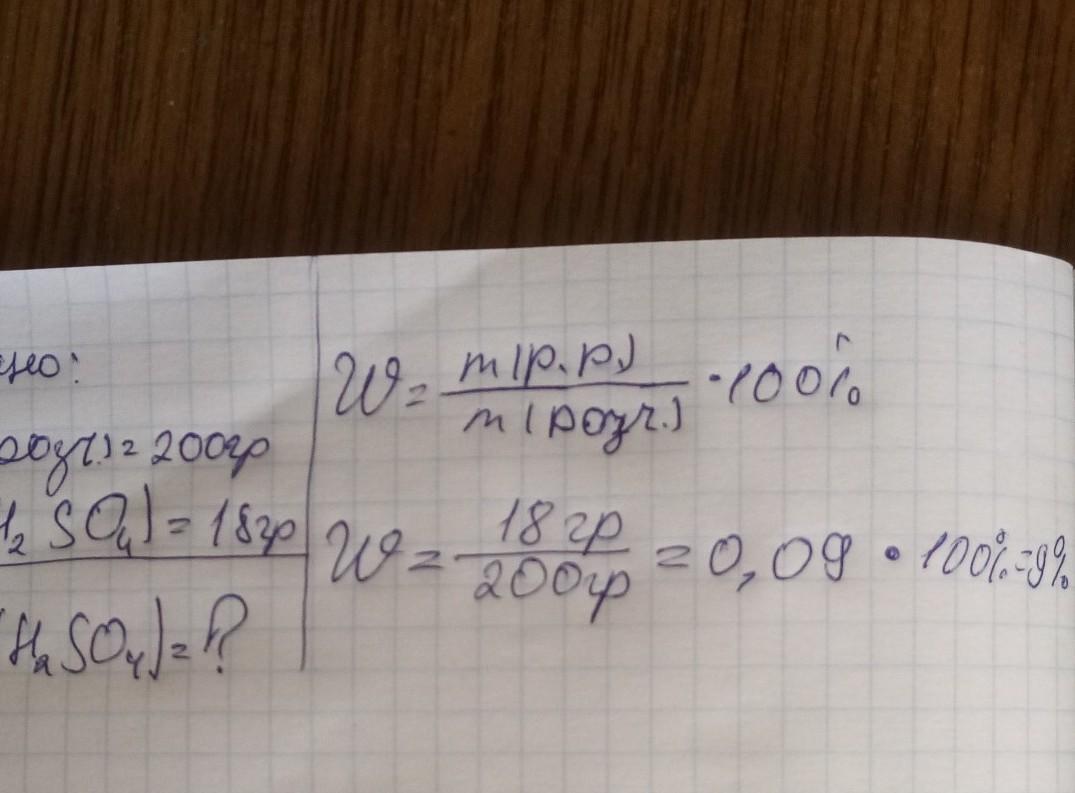 но:
розч.) = 200гр
H₂SO₄) = 18гр
(H₂SO₄) = ?
W = m(р.р.) / m(розч.) · 100%
W = 18гр / 200гр = 0,09 · 100% = 9%